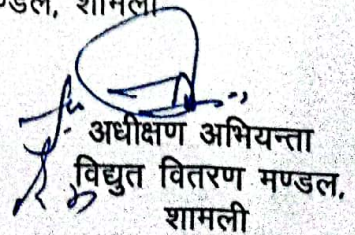 मण्डल, शामली
अधीक्षण अभियन्ता
विद्युत वितरण मण्डल,
शामली